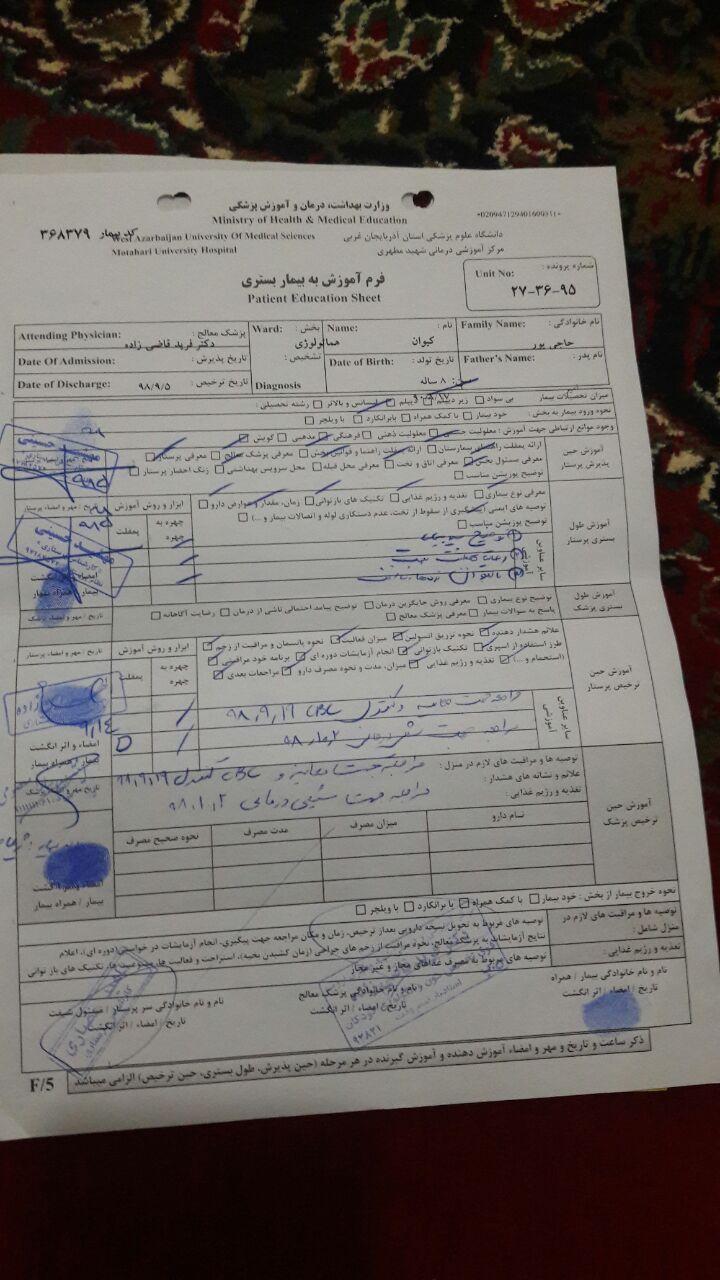 وزارت بهداشت، درمان و آموزش پزشکی
Ministry of Health & Medical Education
*D2094712940160031*
کد بیمار ۳۶۸۳۷۹
West Azarbaijan University Of Medical Sciences
دانشگاه علوم پزشکی استان آذربایجان غربی
Motahari University Hospital
مرکز آموزشی درمانی شهید مطهری
فرم آموزش به بیمار بستری
Patient Education Sheet
شماره پرونده :
Unit No:
۲۷-۳۶-۹۵
نام خانوادگی : Family Name:
حاجی پور
نام : Name:
کیوان
بخش : Ward:
هماتولوژی
پزشک معالج : Attending Physician:
دکتر فرید قاضی زاده
نام پدر : Father's Name:
تاریخ تولد : Date of Birth:
سن: ۸ ساله
تشخیص :
Diagnosis
تاریخ پذیرش : Date Of Admission:
تاریخ ترخیص : Date of Discharge:
۹۸/۹/۵
میزان تحصیلات بیمار بی سواد زیر دیپلم دیپلم لیسانس و بالاتر رشته تحصیلی :
نحوه ورود بیمار به بخش : خود بیمار با کمک همراه بابرانکارد با ویلچر
وجود موانع ارتباطی جهت آموزش : معلولیت جسمی معلولیت ذهنی فرهنگی مذهبی گویش
آموزش حین پذیرش پرستار
ارائه پمفلت راهنمای بیمارستان ارائه پمفلت راهنما و قوانین بخش معرفی پزشک معالج معرفی پرستار
معرفی مسئول بخش معرفی اتاق و تخت معرفی محل قبله محل سرویس بهداشتی زنگ احضار پرستار
توضیح پوزیشن مناسب
تاریخ / مهر و امضاء پرستار
آموزش طول بستری پرستار
معرفی نوع بیماری تغذیه و رژیم غذایی تکنیک های بازتوانی زمان، مقدار و عوارض دارو
توصیه های ایمنی (پیشگیری از سقوط از تخت، عدم دستکاری لوله و اتصالات بیمار و ...)
توضیح پوزیشن مناسب
ابزار و روش آموزش
چهره به چهره
پمفلت
سایر عناوین آموزشی
امضاء و اثر انگشت
بیمار / همراه بیمار
آموزش طول بستری پزشک
توضیح نوع بیماری معرفی روش جایگزین درمان توضیح پیامد احتمالی ناشی از درمان رضایت آگاهانه
پاسخ به سوالات بیمار معرفی پزشک معالج
تاریخ / مهر و امضاء پزشک
آموزش حین ترخیص پرستار
علائم هشدار دهنده نحوه تزریق انسولین میزان فعالیت نحوه پانسمان و مراقبت از زخم
طرز استفاده از اسپری تکنیک بازتوانی انجام آزمایشات دوره ای برنامه خود مراقبتی
(استحمام و ...) تغذیه و رژیم غذایی میزان، مدت و نحوه مصرف دارو مراجعات بعدی
ابزار و روش آموزش
تاریخ / مهر و امضاء پرستار
چهره به چهره
پمفلت
سایر عناوین آموزشی
مراجعه جهت معاینه و کنترل CBC ۹۸,۹,۱۹
امضاء و اثر انگشت
بیمار / همراه بیمار
آموزش حین ترخیص پزشک
توصیه ها و مراقبت های لازم در منزل : مراجعه جهت معاینه و CBC کنترل ۹۸,۹,۱۹
علائم و نشانه های هشدار :
تغذیه و رژیم غذایی : مراجعه جهت شیمی درمانی
نام دارو میزان مصرف مدت مصرف نحوه صحیح مصرف
بیمار / همراه بیمار
نحوه خروج بیمار از بخش : خود بیمار با کمک همراه با برانکارد با ویلچر
توصیه ها و مراقبت های لازم در منزل شامل :
توصیه های مربوط به تحویل نسخه دارویی بعداز ترخیص، زمان و مکان مراجعه جهت پیگیری، انجام آزمایشات در خواستی (دوره ای)، اعلام
نتایج آزمایشات به پزشک معالج، نحوه مراقبت از زخم های جراحی (زمان کشیدن بخیه)، استراحت و فعالیت ها، ممنوعیت ها، تکنیک های باز توانی
تغذیه و رژیم غذایی : توصیه های مربوط به مصرف غذاهای مجاز و غیر مجاز
نام و نام خانوادگی بیمار / همراه
تاریخ / امضاء / اثر انگشت
نام و نام خانوادگی پزشک معالج
تاریخ / امضاء / اثر انگشت
نام و نام خانوادگی سر پرستار / مسئول شیفت
تاریخ / امضاء / اثر انگشت
ذکر ساعت و تاریخ و مهر و امضاء آموزش دهنده و آموزش گیرنده در هر مرحله (حین پذیرش، طول بستری، حین ترخیص) الزامی میباشد
F/5